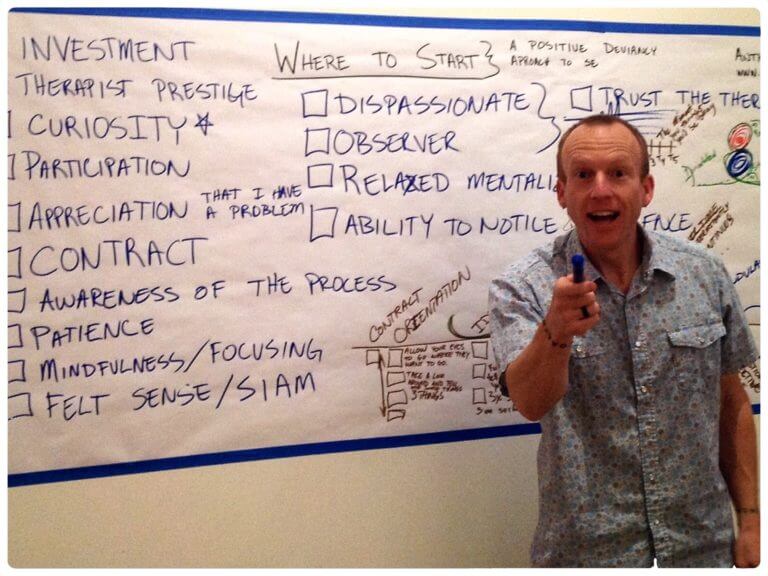 INVESTMENT
THERAPIST PRESTIGE
CURIOSITY
PARTICIPATION
APPRECIATION THAT I HAVE
A PROBLEM
CONTRACT
AWARENESS OF THE PROCESS
PATIENCE
MINDFULNESS/FOCUSING
FELT SENSE/SIAM
WHERE TO START
A POSITIVE DEVIANCY
APROACH TO SE
DISPASSIONATE
OBSERVER
RELAXED MENTALI
ABILITY TO NOTICE
TRUST THE THER
CONTRACT
ORIENTATION
ALLOW YOUR EYES
TO GO WHERE THEY
WANT TO GO.
TAKE A LOOK
AROUND AND TELL
3 THINGS